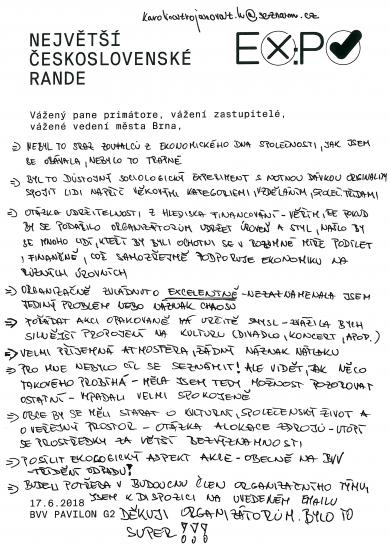 karolinatrojanovalt.k@seznam.cz
NEJVĚTŠÍ
ČESKOSLOVENSKÉ
RANDE
EXPO
Vážený pane primátore, vážení zastupitelé,
vážené vedení města Brna,
NEBYL TO SRAZ ZOUFALCŮ Z EKONOMICKÉHO DNA SPOLEČNOSTI, JAK JSEM
SE OBÁVALA, NEBYLO TO TRAPNÉ
BYL TO DŮSTOJNÝ SOCIOLOGICKÝ EXPERIMENT S NOTNOU DÁVKOU ORIGINALITY
SPOJIT LIDI NAPŘÍČ VĚKOVÝMI KATEGORIEMI, VZDĚLÁNÍM, SPOLEČ. TŘÍDAMI
OTÁZKA UDRŽITELNOSTI Z HLEDISKA FINANCOVÁNÍ - VĚŘÍM, ŽE POKUD
BY SE PODAŘILO ORGANIZÁTORŮM UDRŽET ÚROVEŇ A STYL, NAŠLO BY
SE MNOHO LIDÍ, KTEŘÍ BY BYLI OCHOTNI SE V ROZUMNÉ MÍŘE PODÍLET
FINANČNĚ, COŽ SAMOZŘEJMĚ PODPORUJE EKONOMIKU NA
RŮZNÝCH ÚROVNÍCH
ORGANIZAČNĚ ZVLÁDNUTO EXCELENTNĚ - NEZAZNAMENALA JSEM
JEDINÝ PROBLÉM NEBO NÁZNAK CHAOSU
POŘÁDAT AKCI OPAKOVANĚ MÁ URČITĚ SMYSL - ZVÁŽILA BYCH
SILNĚJŠÍ PROPOJENÍ NA KULTURU (DIVADLO, KONCERT, APOD.)
VELMI PŘÍJEMNÁ ATMOSFÉRA, ŽÁDNÝ NÁZNAK NÁTLAKU
PRO MNE NEBYLO CÍL SE SEZNÁMIT! ALE VIDĚT, JAK NĚCO
TAKOVÉHO PROBÍHÁ - MĚLA JSEM TEDY MOŽNOST POZOROVAT
OSTATNÍ - VYPADALI VELMI SPOKOJENĚ
OBCE BY SE MĚLI STARAT O KULTURNÍ, SPOLEČENSKÝ ŽIVOT A
O VEŘEJNÝ PROSTOR - OTÁZKA ALOKACE ZDROJŮ - UTOPÍ
SE PROSTŘEDKY ZA VĚTŠÍ BEZVÝZNAMNOSTI
POSÍLIT EKOLOGICKÝ ASPEKT AKCE - OBECNĚ NA BVV
- TŘÍDĚNÍ ODPADU!
BUDEU POTŘEBA V BUDOUCNU ČLEN ORGANIZAČNÍHO TÝMU,
JSEM K DISPOZICI NA UVEDENÉM EMAILU
17.6.2018
BVV PAVILON G2
DĚKUJI ORGANIZÁTORŮM. BYLO TO
SUPER!!!